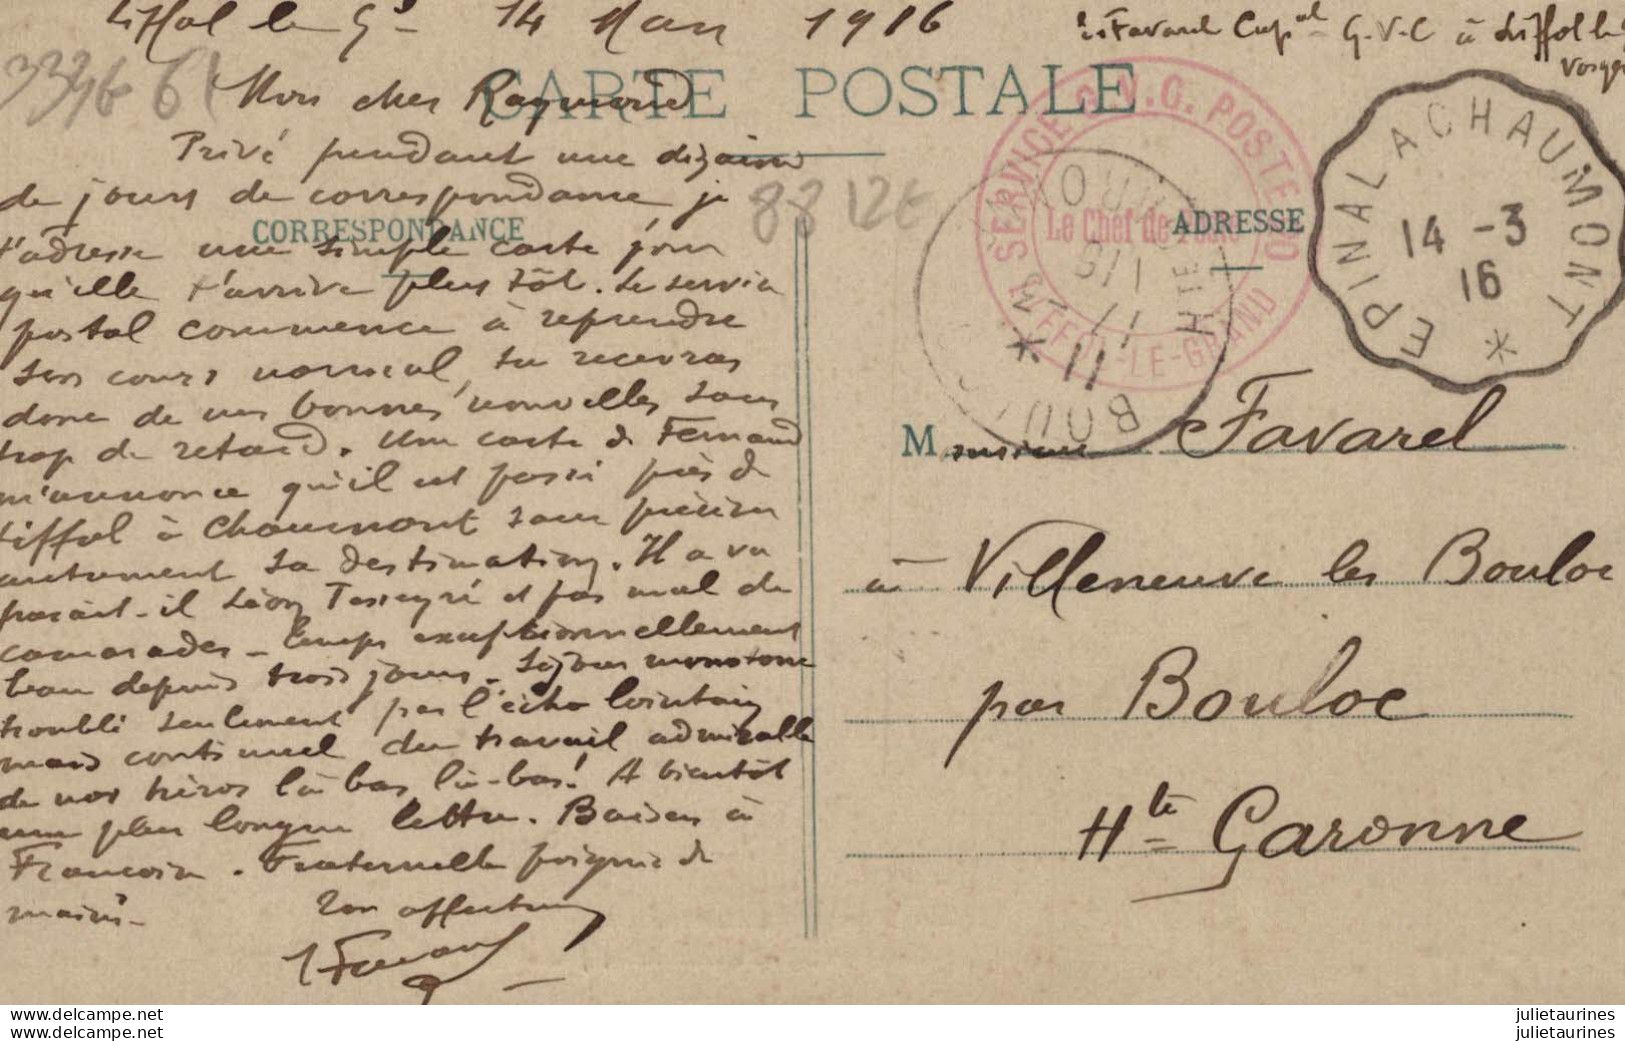 Liffol le Gd 14 Mars 1916
Favarel Cap al G.V.C à Liffol le
Vosges
CARTE POSTALE
Mon cher Raymond
Privé pendant une dizaine
de jours de correspondance je
t'adresse une simple carte pour
qu'elle t'arrive plus tôt. Le service
postal commence à reprendre
son cours normal, tu recevras
donc de mes bonnes nouvelles sans
trop de retard. Une carte de Fernand
m'annonce qu'il est passé près de
Liffol à Chaumont sans préciser
autrement sa destination. Il a vu
parait-il Léon Tesseyré et pas mal de
camarades - temps exceptionnellement
beau depuis trois jours - Séjour monotone
troublé seulement par l'écho lointain
mais continuel du travail admirable
de nos héros là bas, là-bas! A bientôt
une plus longue lettre. Baisers à
Francoise. Fraternelle poignée de
mains -
Ton affectueux
Favarel
CORRESPONDANCE
ADRESSE
3346 61
88 126
SERVICE G.V.C. POSTE
Le Chef de Poste
LIFFOL-LE-GRAND
EPINAL A CHAUMONT
14 -3
16
BOULOC
HTE
Monsieur Favarel
à Villeneuve les Bouloc
par Bouloc
Hte Garonne
julietaurines
julietaurines
julietaurines
julietaurines